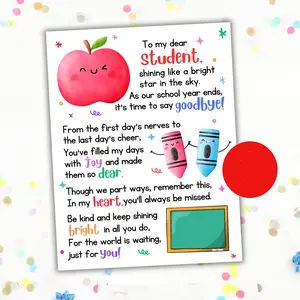 To my dear
student,
shining like a bright
star in the sky.
As our school year ends,
it's time to say goodbye!
From the first day's nerves to
the last day's cheer,
You've filled my days
with joy and made
them so dear.
Though we part ways, remember this,
In my heart, you'll always be missed.
Be kind and keep shining
bright in all you do,
For the world is waiting,
just for you!